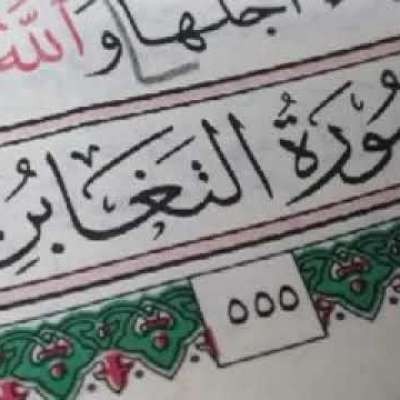 أجلها والله
سُورَةُ التَّغَابُنِ
٥٥٥